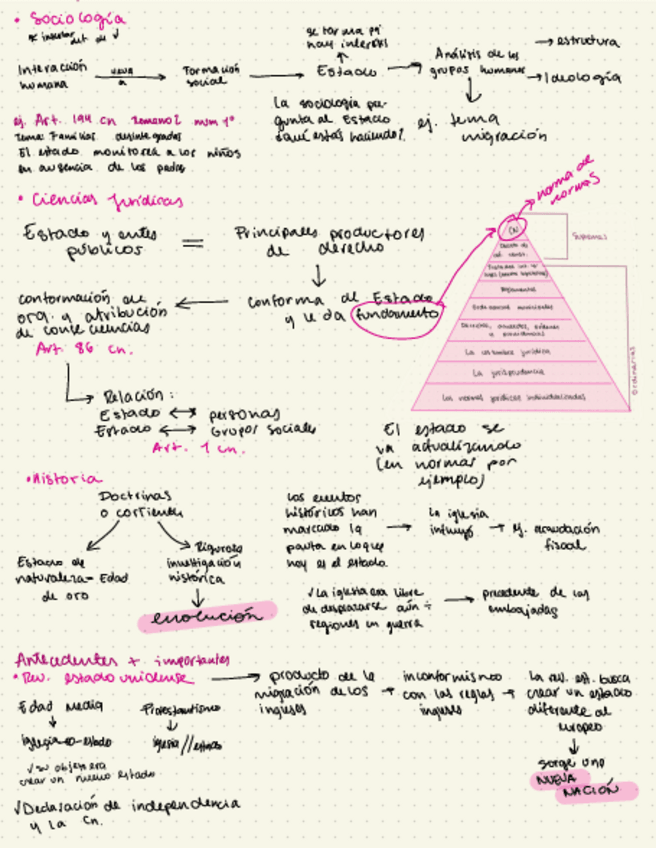 • Sociología
Interacción
humana
lleva
a
Formación
social
se forma pq
hay interés
Estado
Análisis de los
grupos humanos
→ estructura
→ Ideología
La sociología pre-
gunta al Estado
¿qué estás haciendo?
ej. tema
migración
ej. Art. 194 cn romano I num 1º
Tema: Familias desintegradas
El estado monitorea a los niños
en ausencia de los padres
• Ciencias Jurídicas
Estado y entes
públicos
=
Principales productores
de derecho
conforma de Estado
y le da fundamento
conformación de
org. y atribución
de
Art. 86 cn.
Relación:
Estado ↔ personas
Estado ↔ Grupos sociales
Art. 1 cn.
norma de
normas
CN
Supremas
Reglamentos
La costumbre jurídica
La jurisprudencia
Las normas jurídicas individualizadas
ordinarias
El estado se
va actualizando
(en normas por
ejemplo)
• Historia
Doctrinas
o corrientes
Estado de
naturaleza = Edad
de oro
Rigurosa
investigación
histórica
evolución
Los eventos
históricos han
marcado la
pauta en lo que
hoy es el estado
La iglesia
influyó
ej. recaudación
fiscal
√ La iglesia era libre
de desplazarse aún
regiones en guerra
precedente de las
embajadas
Antecedentes + importantes
• Rev. estadounidense
producto de la
migración de los
ingleses
inconformismo
con las reglas
inglesas
La rev. est. busca
crear un estado
diferente al
europeo
surge una
NUEVA
NACIÓN
Edad Media
iglesia estado
Protestantismo
iglesia // estado
√ su objetivo era
crear un nuevo estado
√ Declaración de independencia
y la Cn.